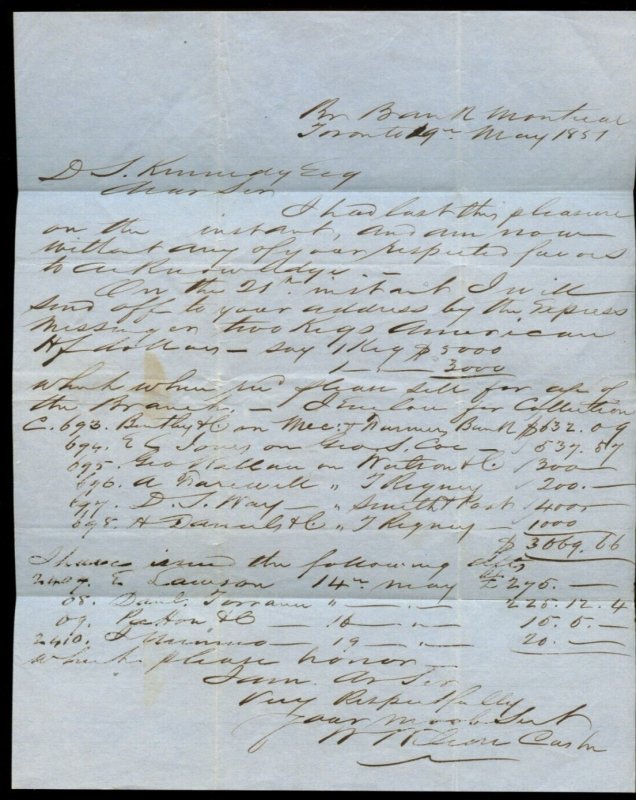 Br Bank Montreal
Toronto 19th May 1851
D S. Kennedy Esq
Dear Sir
I had last this pleasure
on the instant, and am now
without any of your respected favors
to acknowledge —
On the 21st instant I will
send off to your address by the Express
Messenger two Kegs American
Hf dollars — say 1 Keg $ 5000
1 — — 3000
which when rec'd please sell for a/c of
the Branch. — I enclose for Collection
C. 693. & Co on Mec: & Bank $ 632.09
694. E C Jones on Geo S. Coe — 537.57
695. Geo on Watson & Co
696. A Farewell " T Rigney — 200. —
697. D. S. Way — " Smith &
698. H Daniels & Co " T Rigney — 1000
$ 3069.66
I have issued the following dfts
2407. E Lawson 14th May £ 275. —
08. Danl. Torrance " — " — 225.12.4
09. & Co — 16 — " — 15.5. —
2410. J — 19 — " — 20. —
which please honor —
I am Dr Sir
Very Respectfully
Your most Obt Sert
Cashr